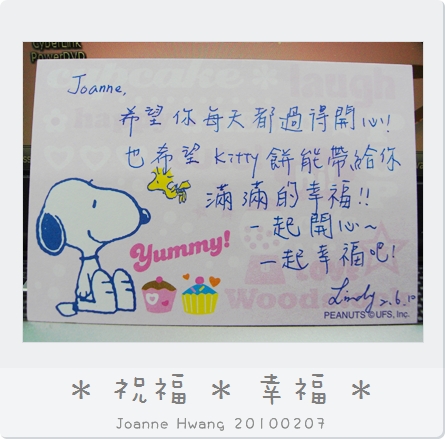 CyberLink
PowerDVD
Joanne,
希望你每天都過得開心!
也希望 Kitty 餅能帶給你
滿滿的幸福!!
一起開心~
一起幸福吧!
Yummy!
Lindy 2.6.10
PEANUTS © UFS, Inc.
* 祝福 * 幸福 *
Joanne Hwang 20100207